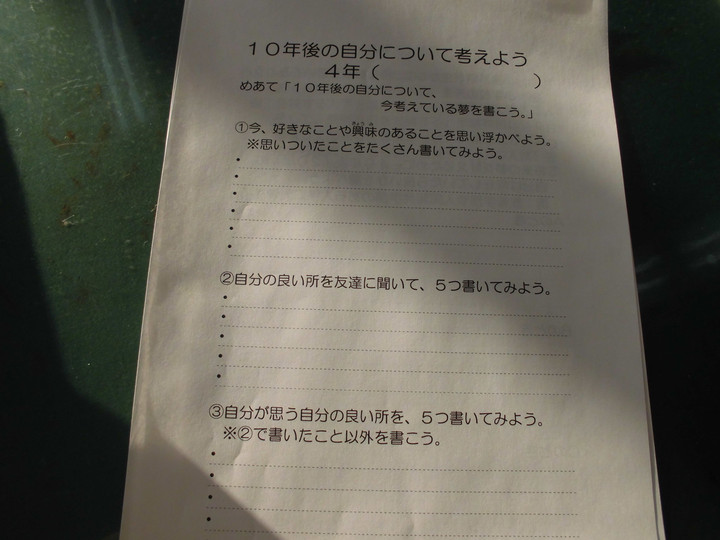 １０年後の自分について考えよう
４年（　　　　　　　　　　）
めあて「１０年後の自分について、
今考えている夢を書こう。」
①今、好きなことや興味のあることを思い浮かべよう。
※思いついたことをたくさん書いてみよう。
・
・
・
・
・
・
②自分の良い所を友達に聞いて、５つ書いてみよう。
・
・
・
・
・
③自分が思う自分の良い所を、５つ書いてみよう。
※②で書いたこと以外を書こう。
・
・
・
・